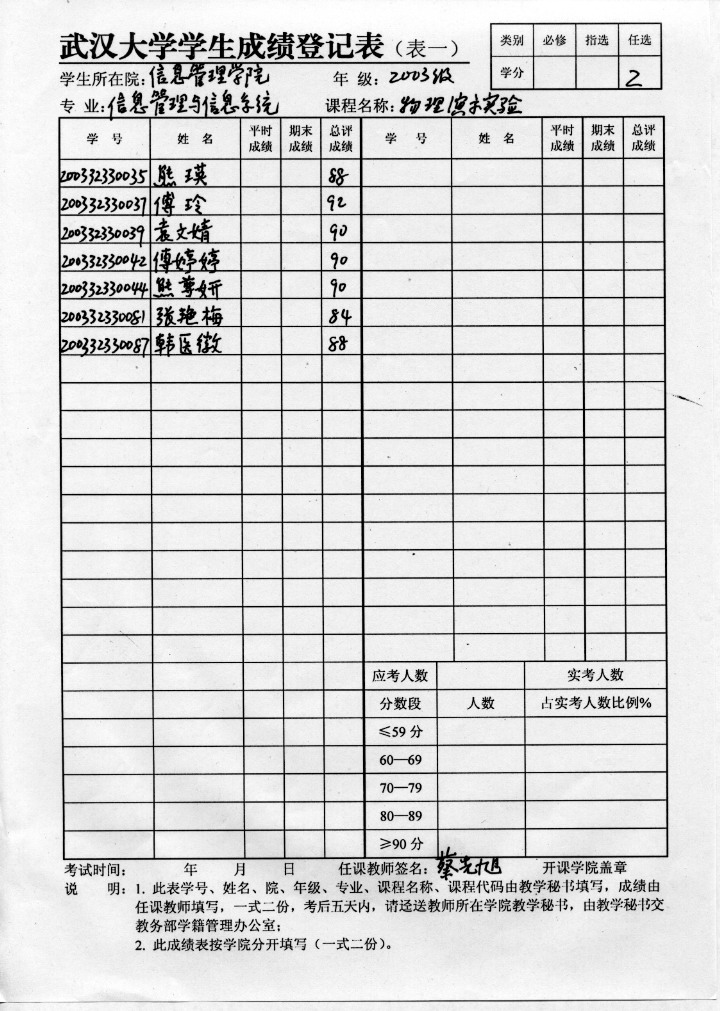 武汉大学学生成绩登记表（表一）
类别 必修 指选 任选
学分 2
学生所在院:信息管理学院 年 级:2003级
专 业:信息管理与信息系统 课程名称:物理演示实验
学 号 姓 名 平时成绩 期末成绩 总评成绩 学 号 姓 名 平时成绩 期末成绩 总评成绩
200332330035 熊瑛 88
200332330037 傅玲 92
200332330039 袁文婧 90
200332330042 傅婷婷 90
200332330044 熊 妍 90
200332330081 张艳梅 84
200332330087 韩医徽 88
应考人数 实考人数
分数段 人数 占实考人数比例%
≤59 分
60—69
70—79
80—89
≥90 分
考试时间: 年 月 日 任课教师签名:蔡光旭 开课学院盖章
说 明: 1. 此表学号、姓名、院、年级、专业、课程名称、课程代码由教学秘书填写，成绩由
任课教师填写，一式二份，考后五天内，请迳送教师所在学院教学秘书，由教学秘书交
教务部学籍管理办公室；
2. 此成绩表按学院分开填写（一式二份）。